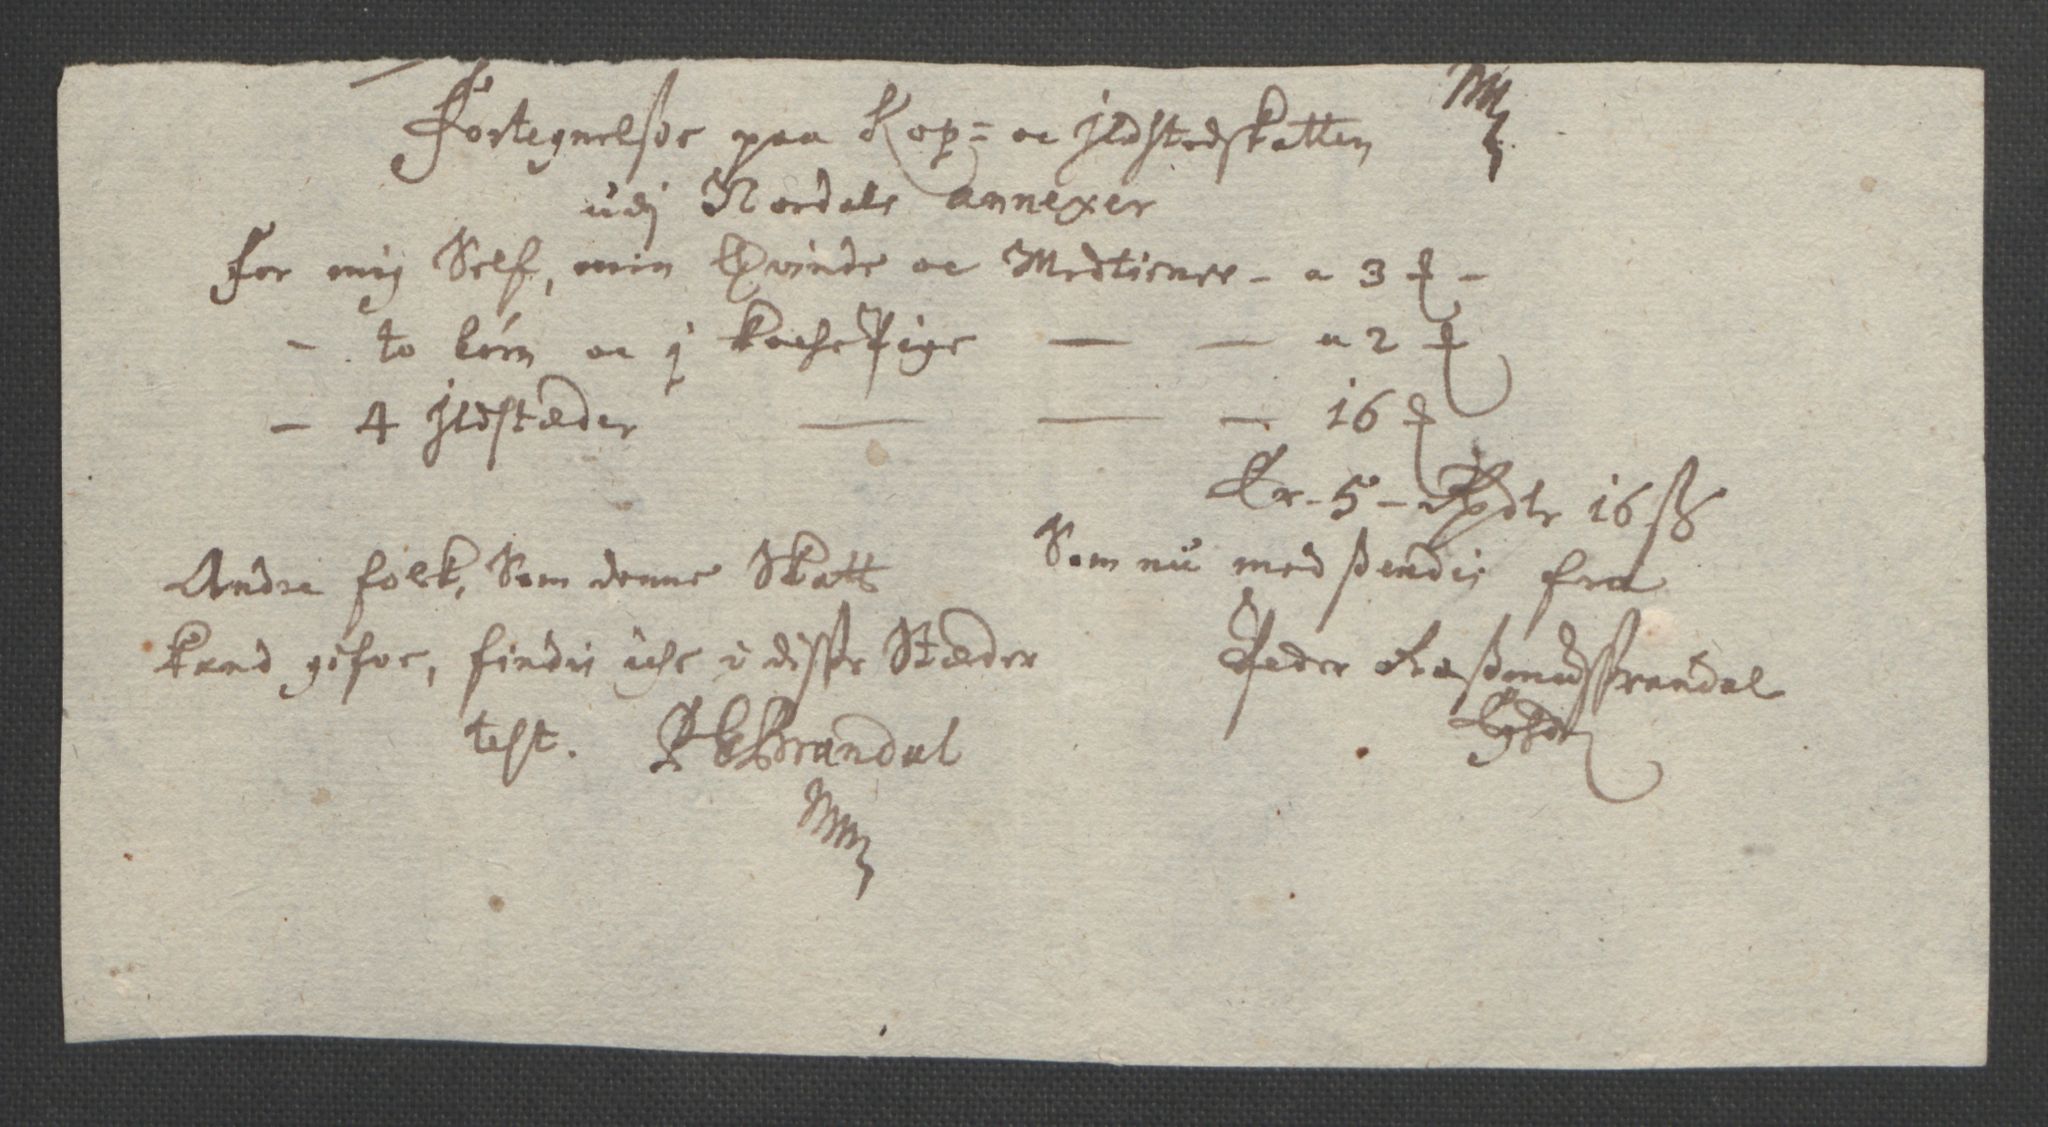 Fortegnelsse paa Kop= oc jldstedskatten
udj Nordals annexer
For mig Self, min Qvinde oc Medtiener - a 3 ƒ -
- to børn oc j kochePige — — a 2 ƒ
- 4 jldstæder — — — 16 ƒ
Er - 5 - Rxdlr 16 ß
Andre folk, Som denne Skatt
kand gifve, findis iche i disse Stæder
test. PRBrandal
Som nu med ßendis fra
Peder Raßmudssbrandal